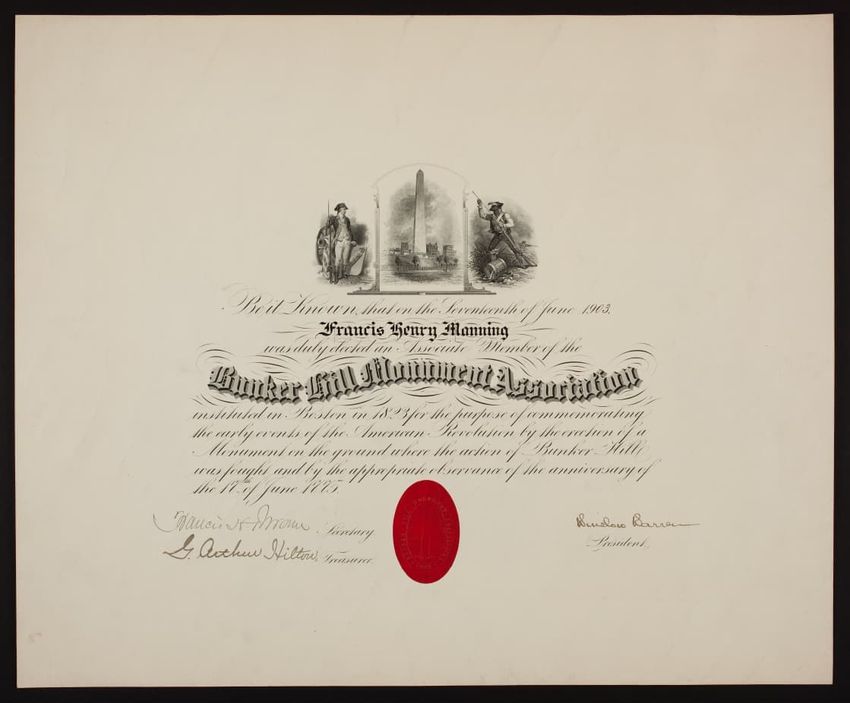 Be it Known, that on the Seventeenth of June 1903.
Francis Henry Manning
was duly elected an Associate Member of the
Bunker Hill Monument Association
instituted in Boston in 1823 for the purpose of commemorating
the early events of the American Revolution by the erection of a
Monument on the ground where the action of Bunker Hill
was fought and by the appropriate observance of the anniversary of
the 17th of June 1775.
Francis H. Brown Secretary
G. Arthur Hilton, Treasurer
Winslow Warren
President